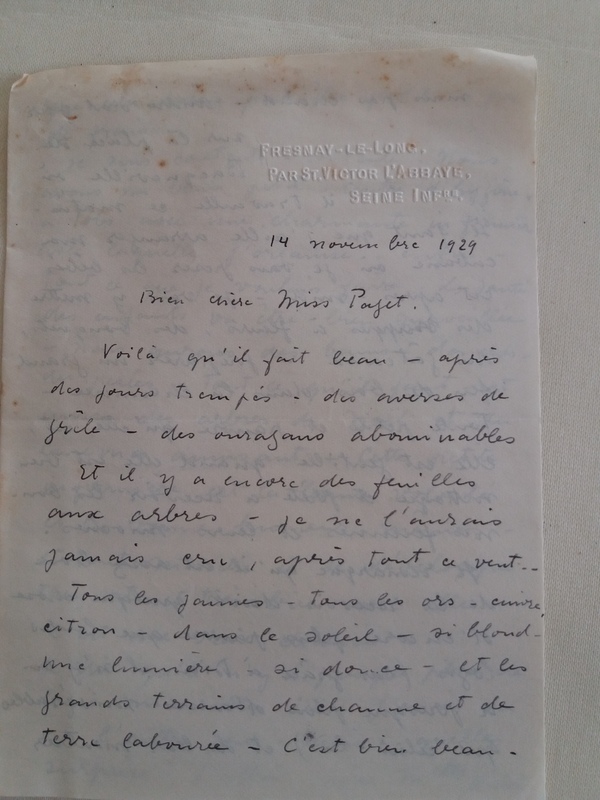 FRESNAY-LE-LONG,
PAR ST. VICTOR L'ABBAYE,
SEINE INFRE.
14 novembre 1929
Bien chère Miss Paget.
Voilà qu'il fait beau – après
des jours trempés – des averses de
grêle – des ouragans abominables
Et il y a encore des feuilles
aux arbres – je ne l'aurais
jamais cru, après tout ce vent..
Tous les jaunes – tous les ors – cuivre,
citron – dans le soleil – si blond –
une lumière – si douce – et les
grands terrains de chaume et de
terre labourée – C'est bien beau –